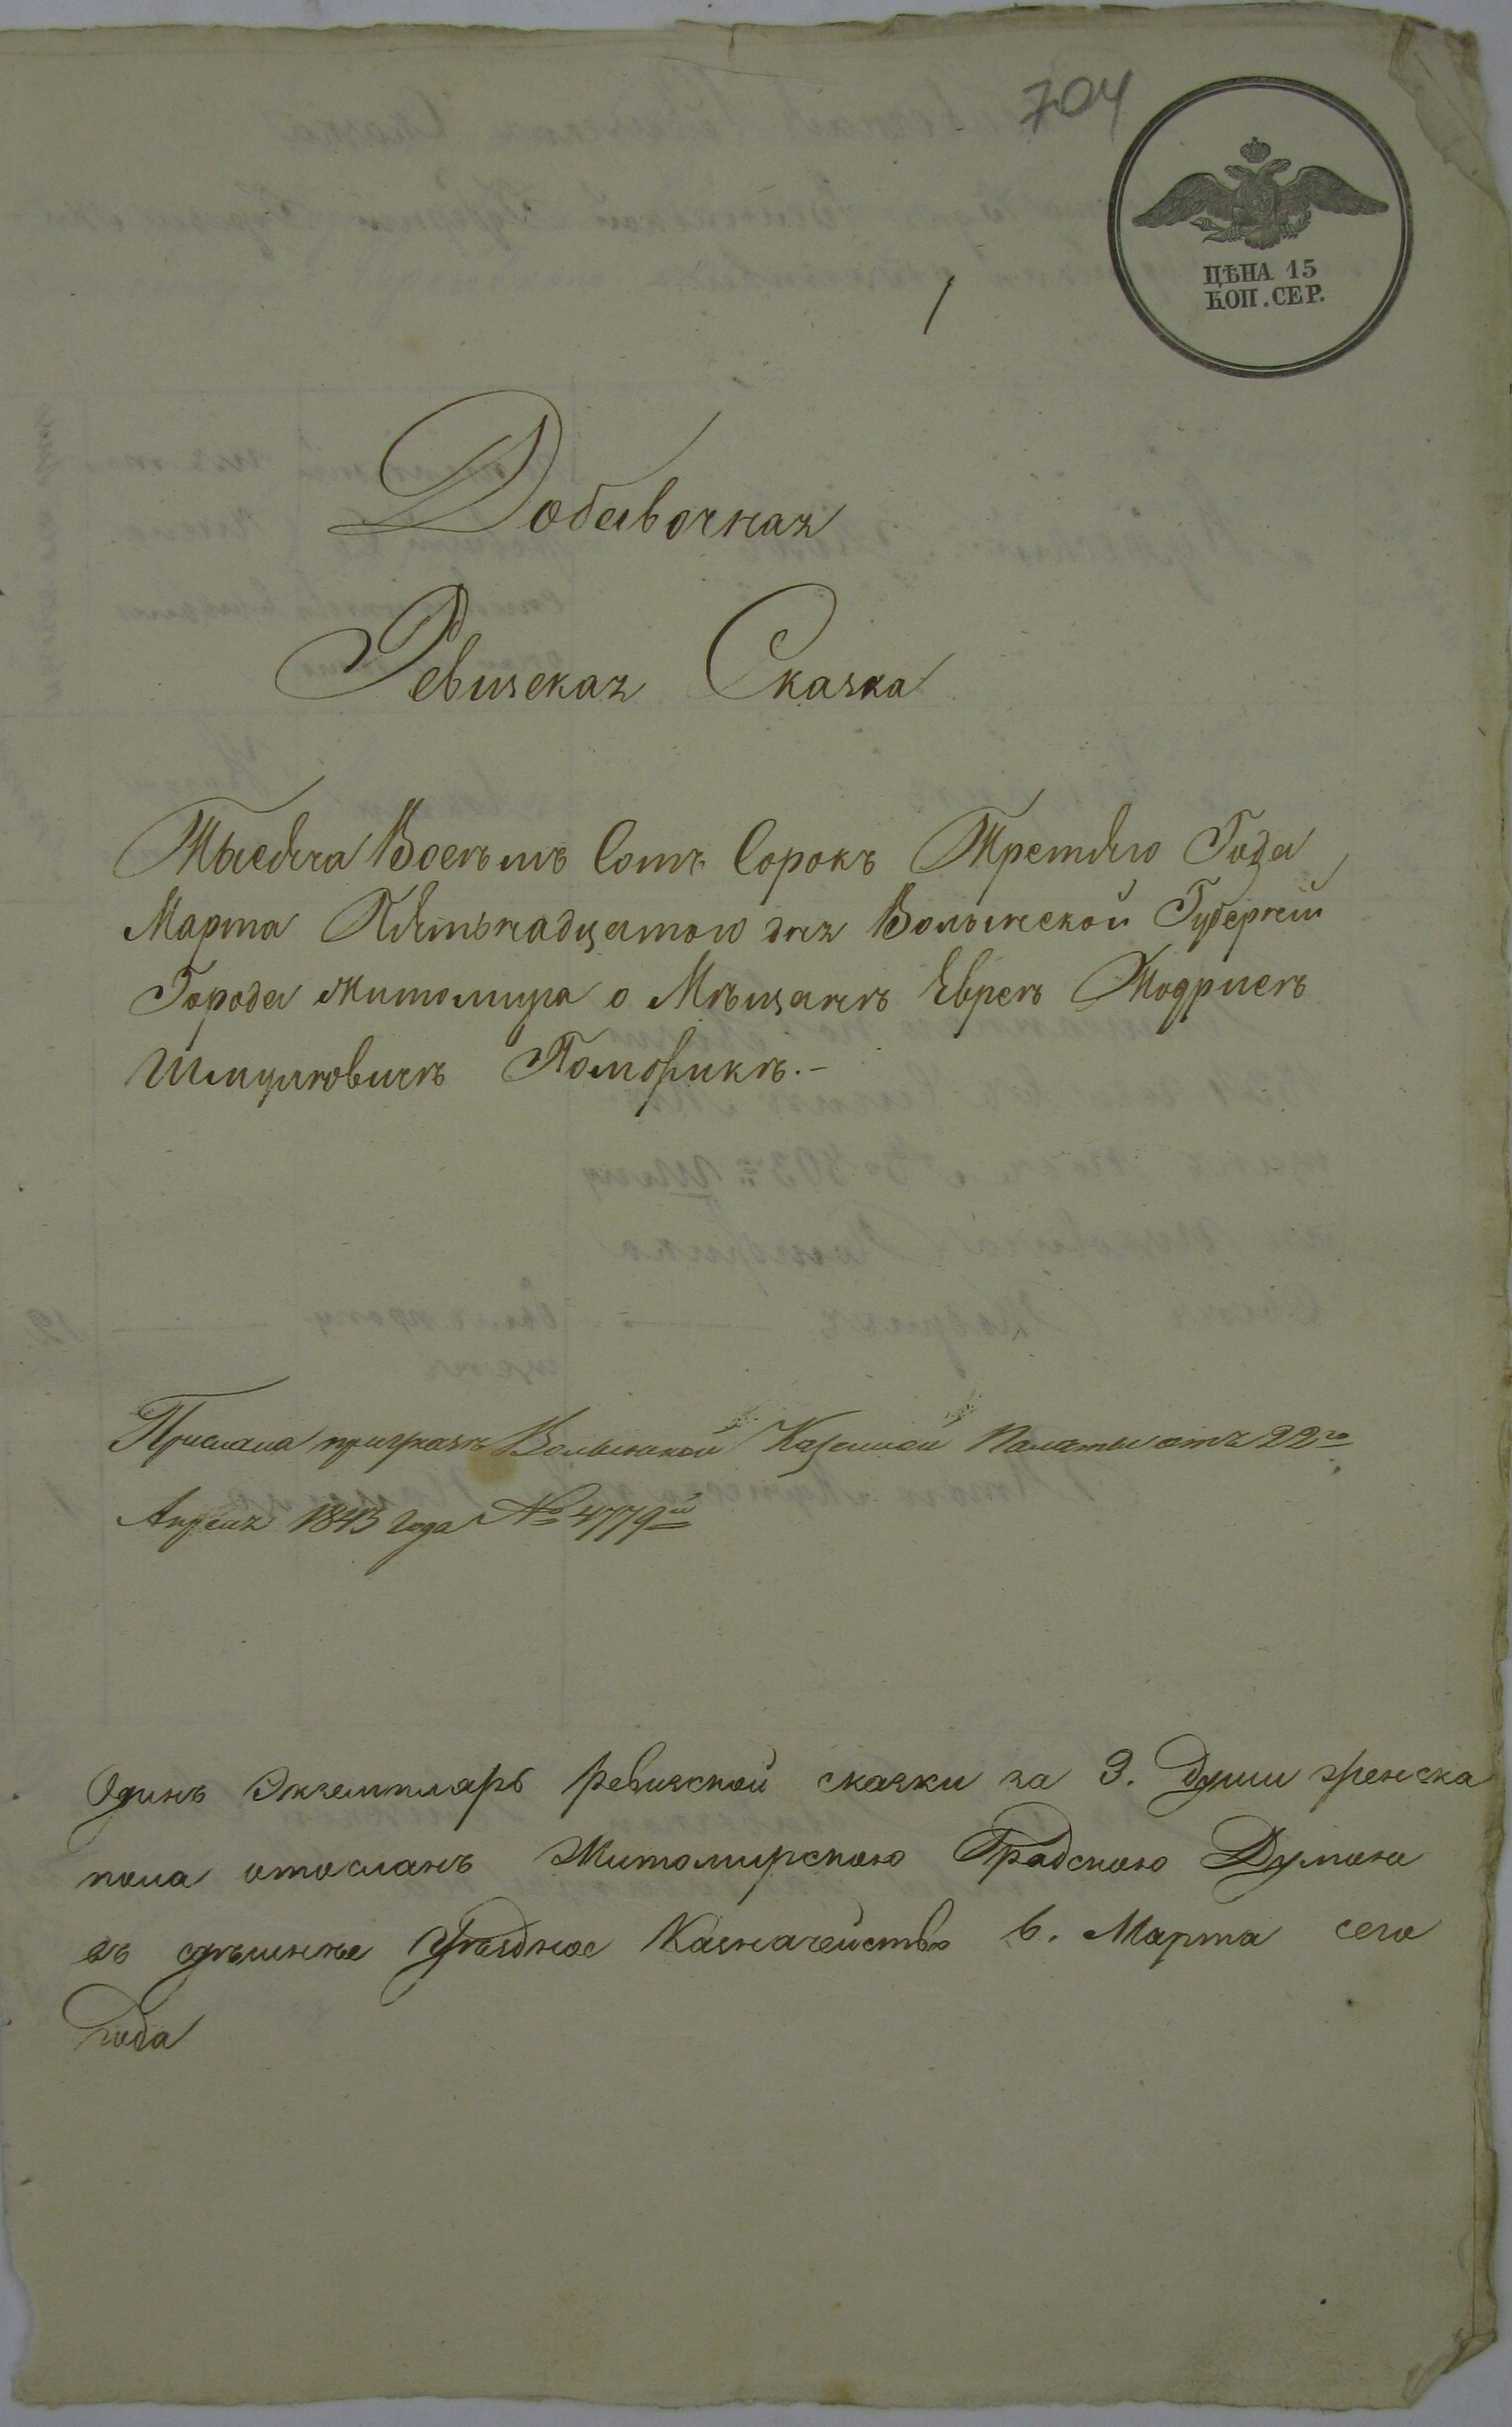 704
ЦѢНА 15
КОП. СЕР.
1
Добавочная
Ревизская Сказка
Тысяча Восемъ Сотъ Сорокъ Третяго Года
Марта Пятьнадцатого дня Волынской Губерніи
Города Житомира о Мѣщанинѣ Евреѣ
Шмулiовичѣ
Прислана при указѣ Волынской Казенной Палаты отъ 22го
Апреля 1843 года № 4779й
Одинъ Экземпляръ ревизской сказки за 3. души женска
пола отосланъ Житомирскою Градскою Думою
въ здѣшнѣе Уѣздное Казначейство 6. Марта сего
года